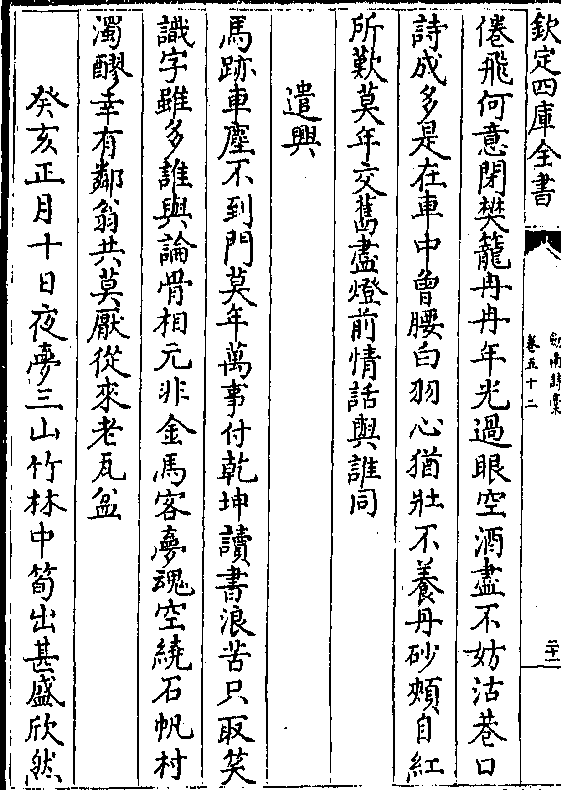 欽定四庫全書
劍南詩稾
卷五十二
二十二
倦飛何意閉樊籠冉冉年光過眼空酒盡不妨沽巷口
詩成多是在車中曾腰白羽心猶壯不養丹砂頰自紅
所歎莫年交舊盡燈前情話與誰同
遣興
馬跡車塵不到門莫年萬事付乾坤讀書浪苦只取笑
識字雖多誰與論骨相元非金馬客夢魂空繞石帆村
濁醪幸有鄰翁共莫厭從來老瓦盆
癸亥正月十日夜夢三山竹林中筍出甚盛欣然